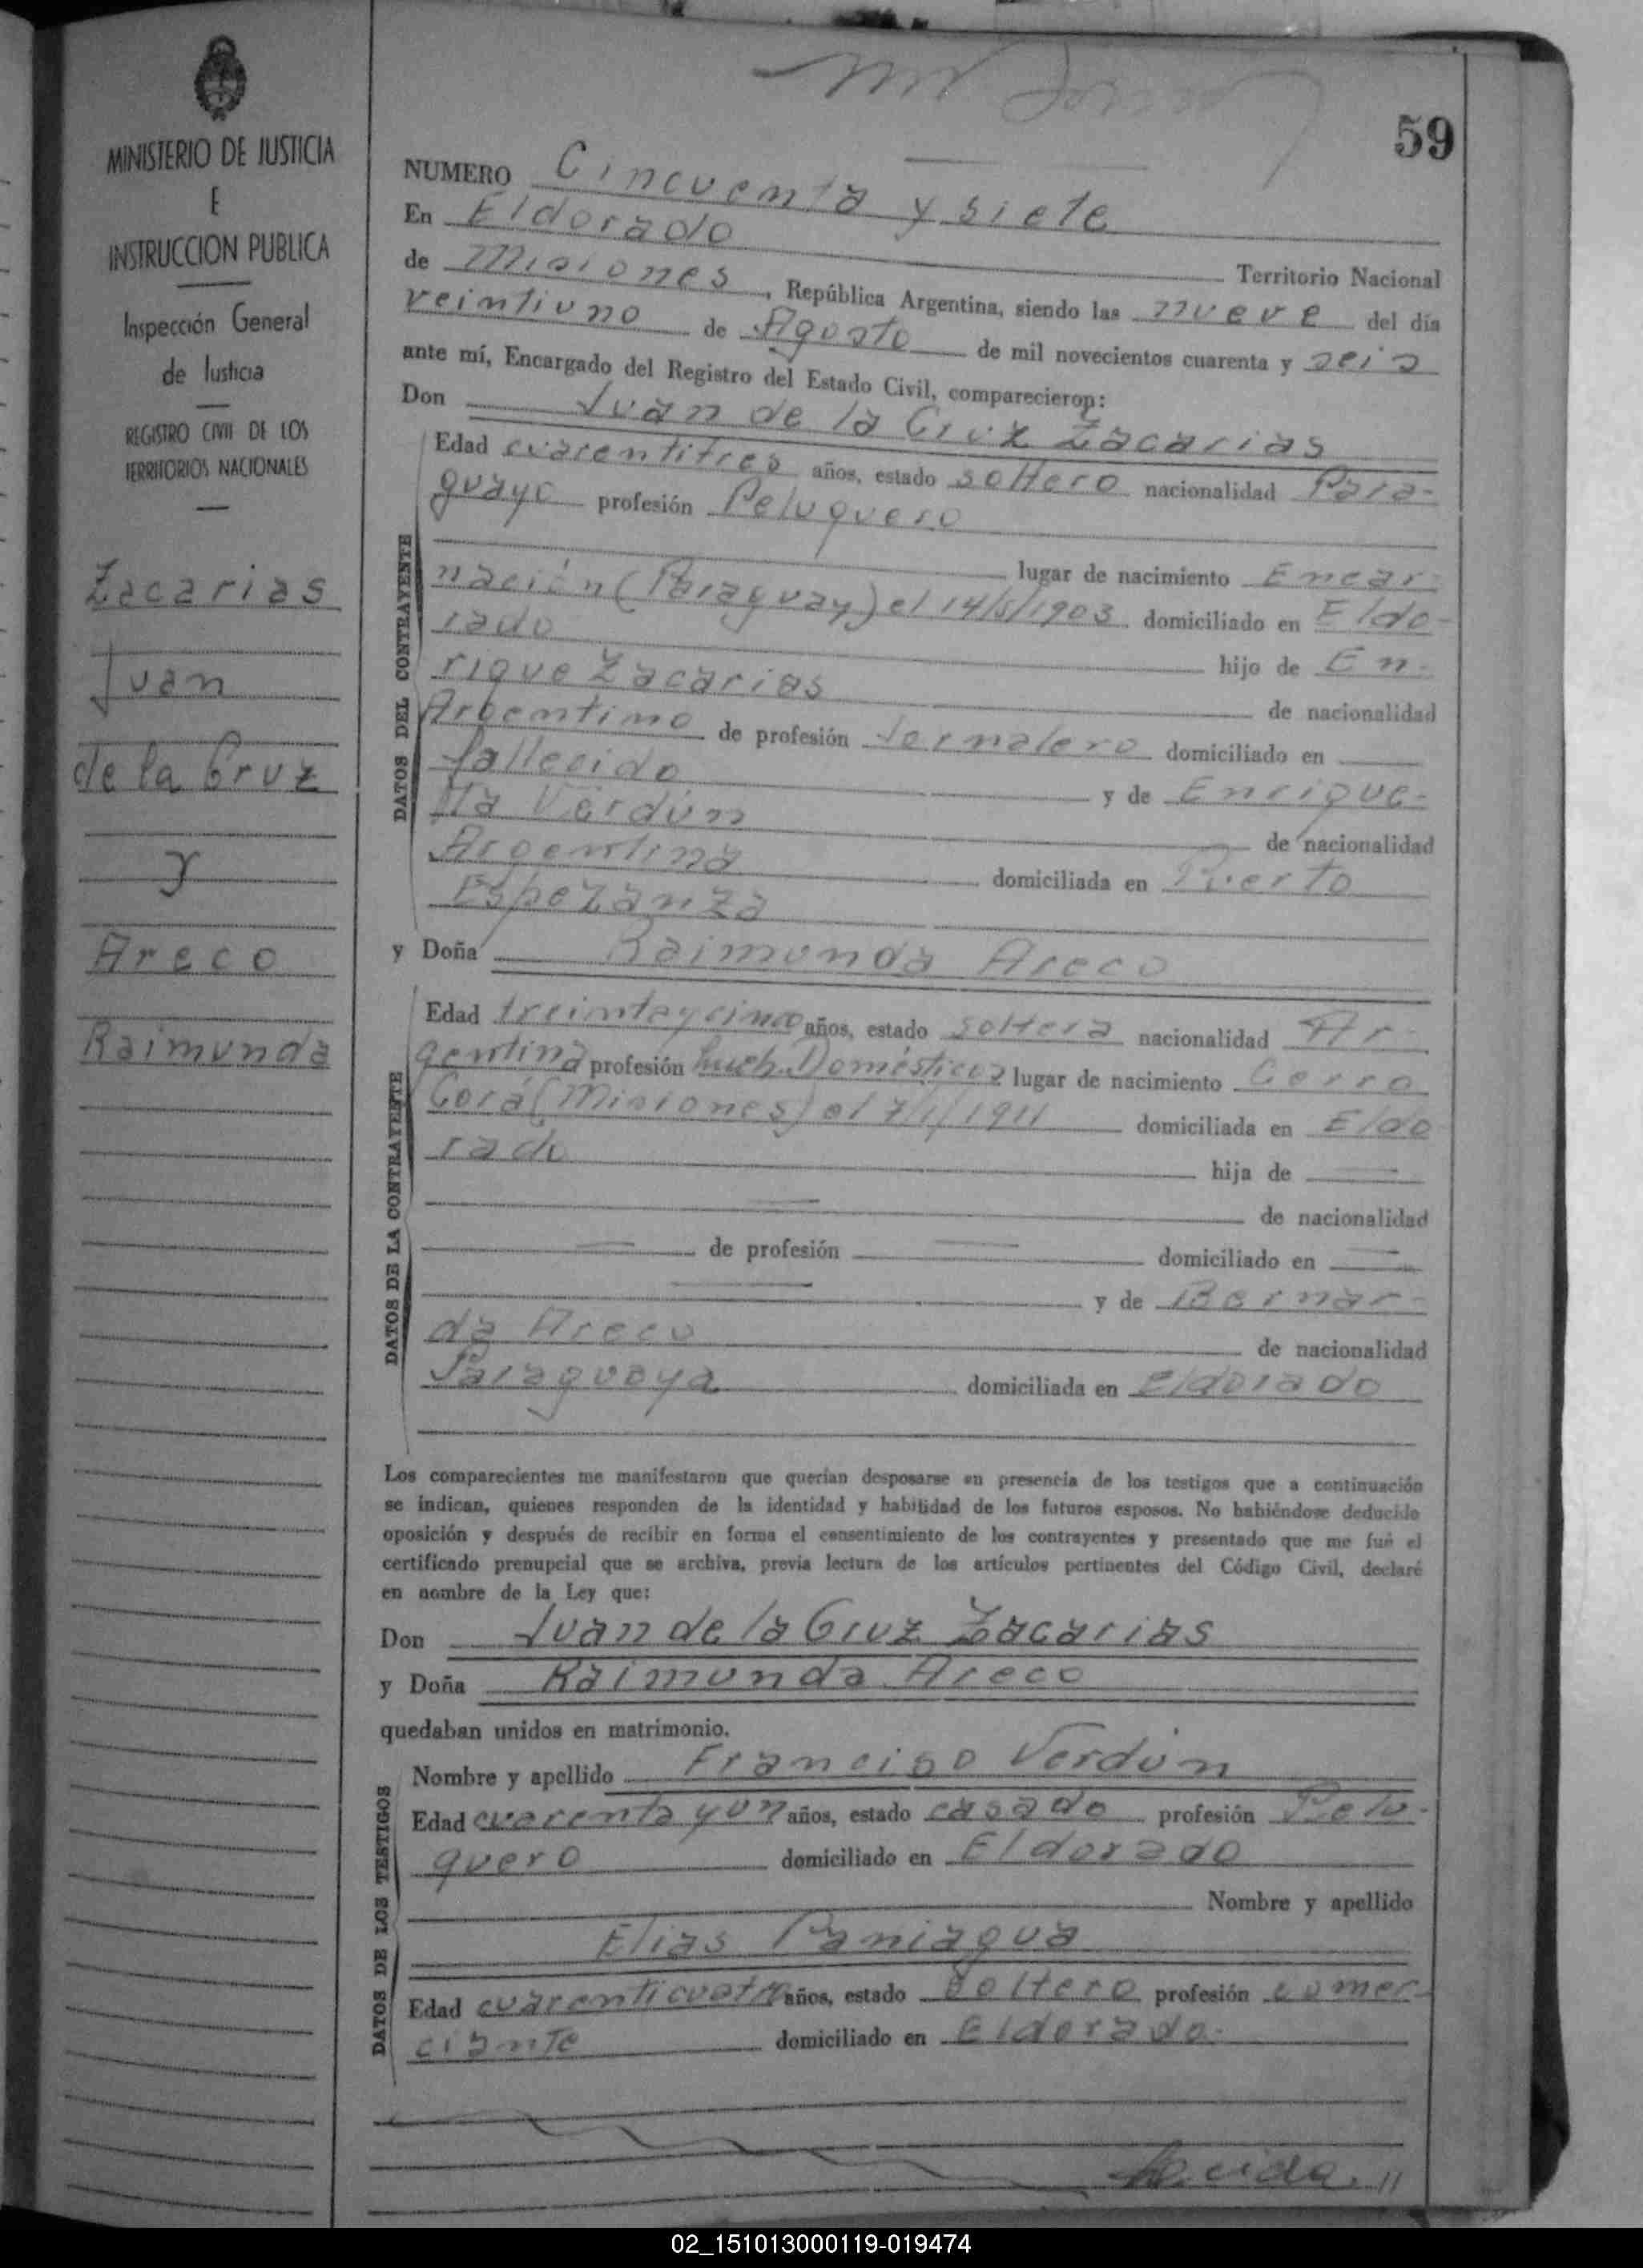 MINISTERIO DE JUSTICIA
E
INSTRUCCION PUBLICA
Inspección General
de Justicia
REGISTRO CIVIL DE LOS
TERRITORIOS NACIONALES
Zacarias
Juan
de la Cruz
y
Areco
Raimunda
59
NUMERO Cincuenta y siete
En Eldorado
Territorio Nacional
de Misiones, República Argentina, siendo las nueve del día
veintiuno de Agosto de mil novecientos cuarenta y seis
ante mí, Encargado del Registro del Estado Civil, comparecieron:
Don Juan de la Cruz Zacarias
DATOS DEL CONTRAYENTE
Edad cuarentitres años, estado soltero nacionalidad Para-
guayo profesión Peluquero
lugar de nacimiento Encar-
nación (Paraguay) el 14/5/1903 domiciliado en Eldo-
rado
hijo de En-
rique Zacarias
de nacionalidad
Argentino de profesión Jornalero domiciliado en
fallecido
y de Enrique-
tta Verdún
de nacionalidad
Argentina
domiciliada en Puerto
Espezanza
y Doña Raimunda Areco
DATOS DE LA CONTRAYENTE
Edad treintaycinco años, estado soltera nacionalidad Ar-
gentina profesión Queh. Domésticos lugar de nacimiento Cerro
Corá (Misiones) el 7/1/1911 domiciliada en Eldo
rado
hija de
de nacionalidad
de profesión
domiciliado en
y de Bernar-
da Areco
de nacionalidad
Paraguaya
domiciliada en eldorado
Los comparecientes me manifestaron que querían desposarse en presencia de los testigos que a continuación
se indican, quienes responden de la identidad y habilidad de los futuros esposos. No habiéndose deducido
oposición y después de recibir en forma el consentimiento de los contrayentes y presentado que me fué el
certificado prenupcial que se archiva, previa lectura de los artículos pertinentes del Código Civil, declaré
en nombre de la Ley que:
Don Juan de la Cruz Zacarias
y Doña Raimunda Areco
quedaban unidos en matrimonio.
DATOS DE LOS TESTIGOS
Nombre y apellido Franciso Verdún
Edad cuarenta y un años, estado casado profesión Pelu-
quero domiciliado en Eldorado
Nombre y apellido
Elias Paniagua
Edad cuarenticuatro años, estado soltero profesión comer-
ciante domiciliado en Eldorado.
02_151013000119-019474